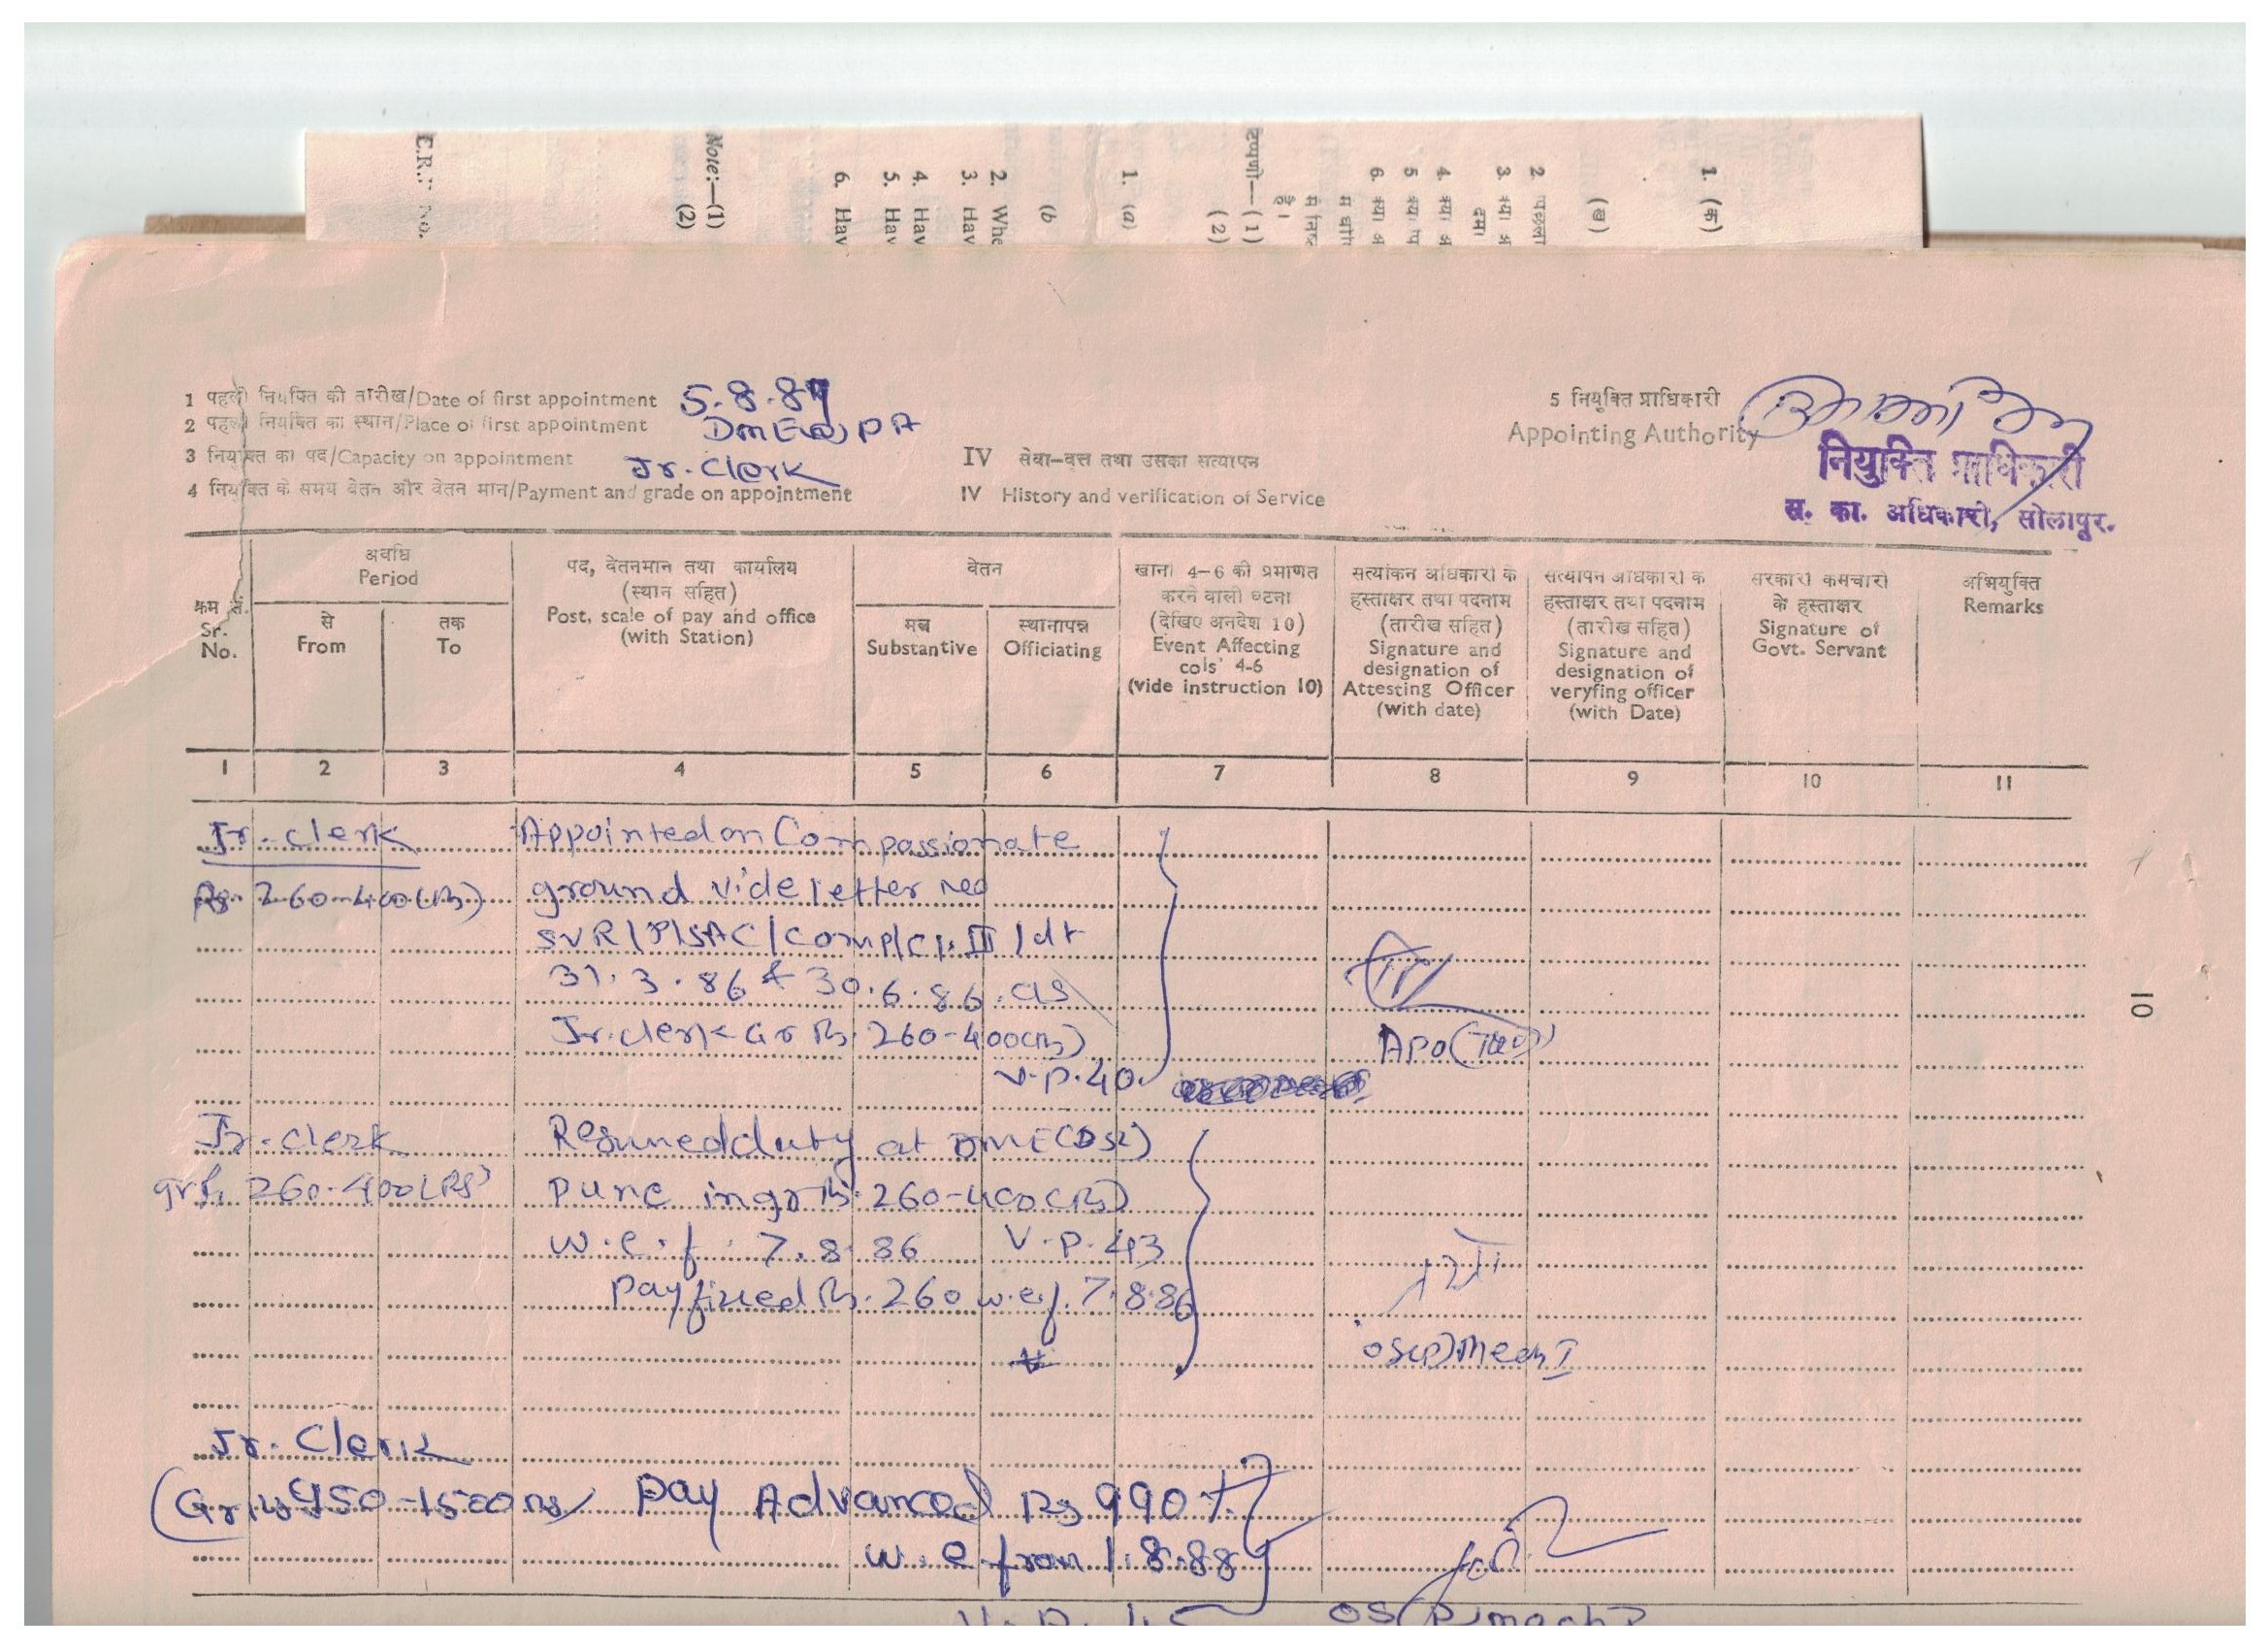 C.R.
No.
Note:—(1)
(2)
6. Hav
5. Hav
4. Hav
3. Hav
2. Whe
(b
1. (a)
टिप्पणी—(1)
(2)
है।
6. क्या अ
5 क्या प
4. क्या अ
3. क्या अ
2
(ख)
1. (क)
1 पहली नियुक्ति की तारीख/Date of first appointment 5.8.87
2 पहली नियुक्ति का स्थान/Place of first appointment PA
3 नियुक्त का पद/Capacity on appointment Jr. Clerk
4 नियुक्ति के समय वेतन और वेतन मान/Payment and grade on appointment
IV सेवा-वृत्त तथा उसका सत्यापन
IV History and verification of Service
5 नियुक्ति प्राधिकारी
Appointing Authority
नियुक्ति प्राधिकारी
स. का. अधिकारी, सोलापूर.
क्रम सं. Sr. No.
अवधि Period
से From
तक To
पद, वेतनमान तथा कार्यालय (स्थान सहित) Post, scale of pay and office (with Station)
वेतन
मूल Substantive
स्थानापन्न Officiating
खाना 4-6 को प्रमाणत करने वाली घटना (देखिए अनदेश 10) Event Affecting cols' 4-6 (vide instruction 10)
सत्यांकन अधिकारी के हस्ताक्षर तथा पदनाम (तारीख सहित) Signature and designation of Attesting Officer (with date)
सत्यापन अधिकारी के हस्ताक्षर तथा पदनाम (तारीख सहित) Signature and designation of veryfing officer (with Date)
सरकारी कर्मचारी के हस्ताक्षर Signature of Govt. Servant
अभियुक्ति Remarks
1 2 3 4 5 6 7 8 9 10 11
Jr. clerk Appointed on Compassionate
Rs. 260-400(Rs) ground vide letter no
SUR/P/SAC/Comp/Cl. III/dt
31.3.86 & 30.6.86 as
Jr. clerk Gr Rs. 260-400(Rs)
APO
V.P. 40
10
Jr. clerk Resumed duty at DME(DSL)
gr Rs 260-400(RS) Pune in gr Rs. 260-400(Rs)
w.e.f. 7.8.86 V.P. 43
Pay fixed Rs. 260 w.e.f. 7.8.86
OS(P) Mech I
Jr. Clerk
(Gr Rs 950-1500 Rs) Pay Advanced Rs 990/-
w.e from 1.8.88
V.P. 45 OS(P) mech